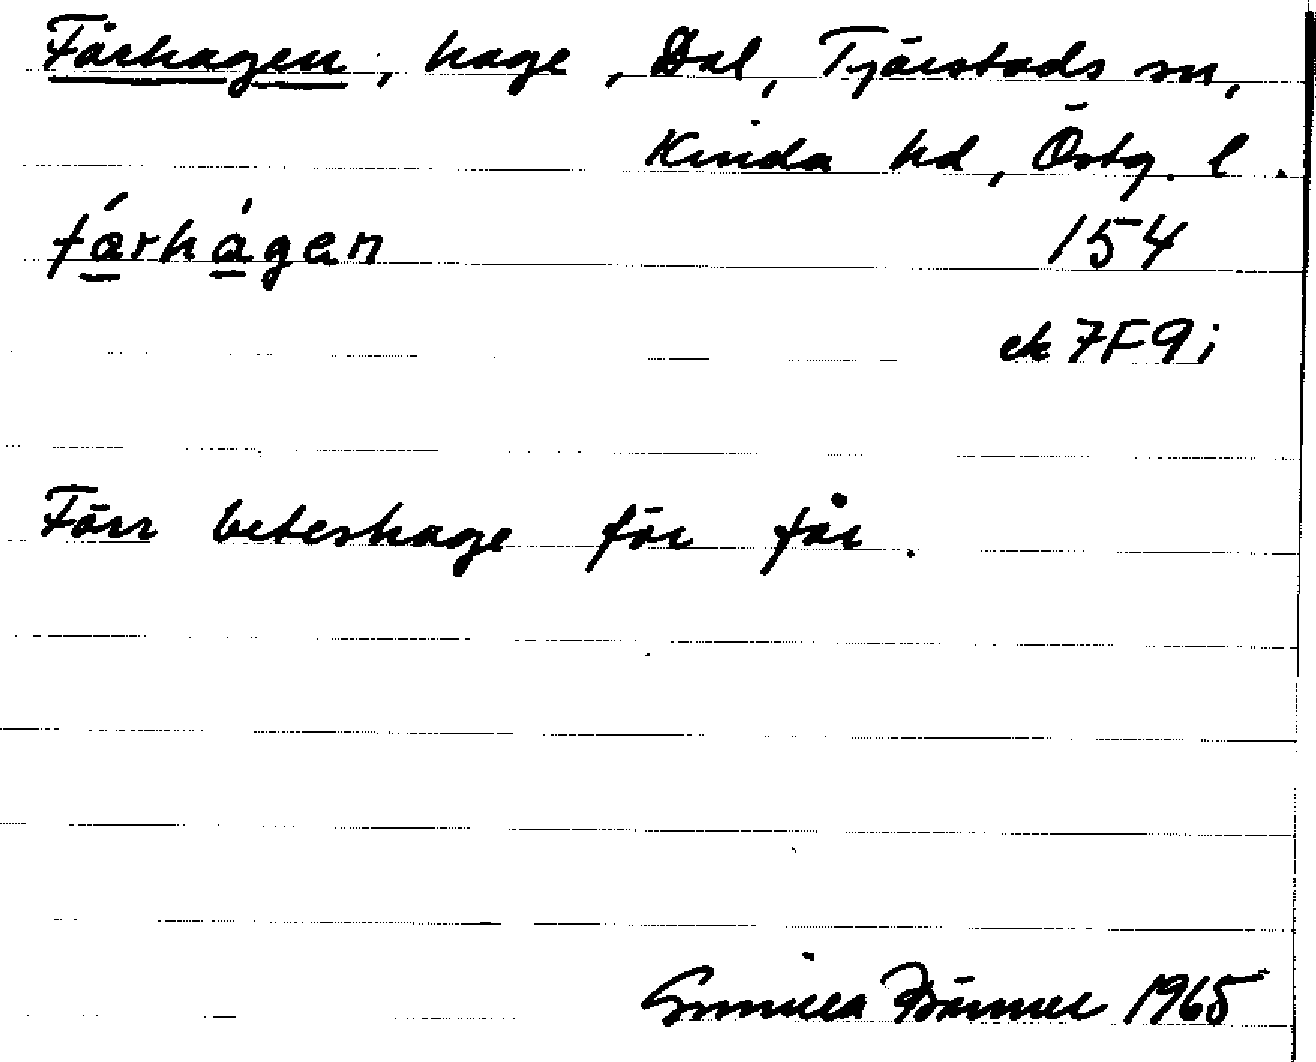 Fårhagen, hage, Dal, Tjärstads sn,
Kinda hd, Östg. l.
fårhagen 154
ek 7F9i
Förr beteshage för får.
Gunilla 1965